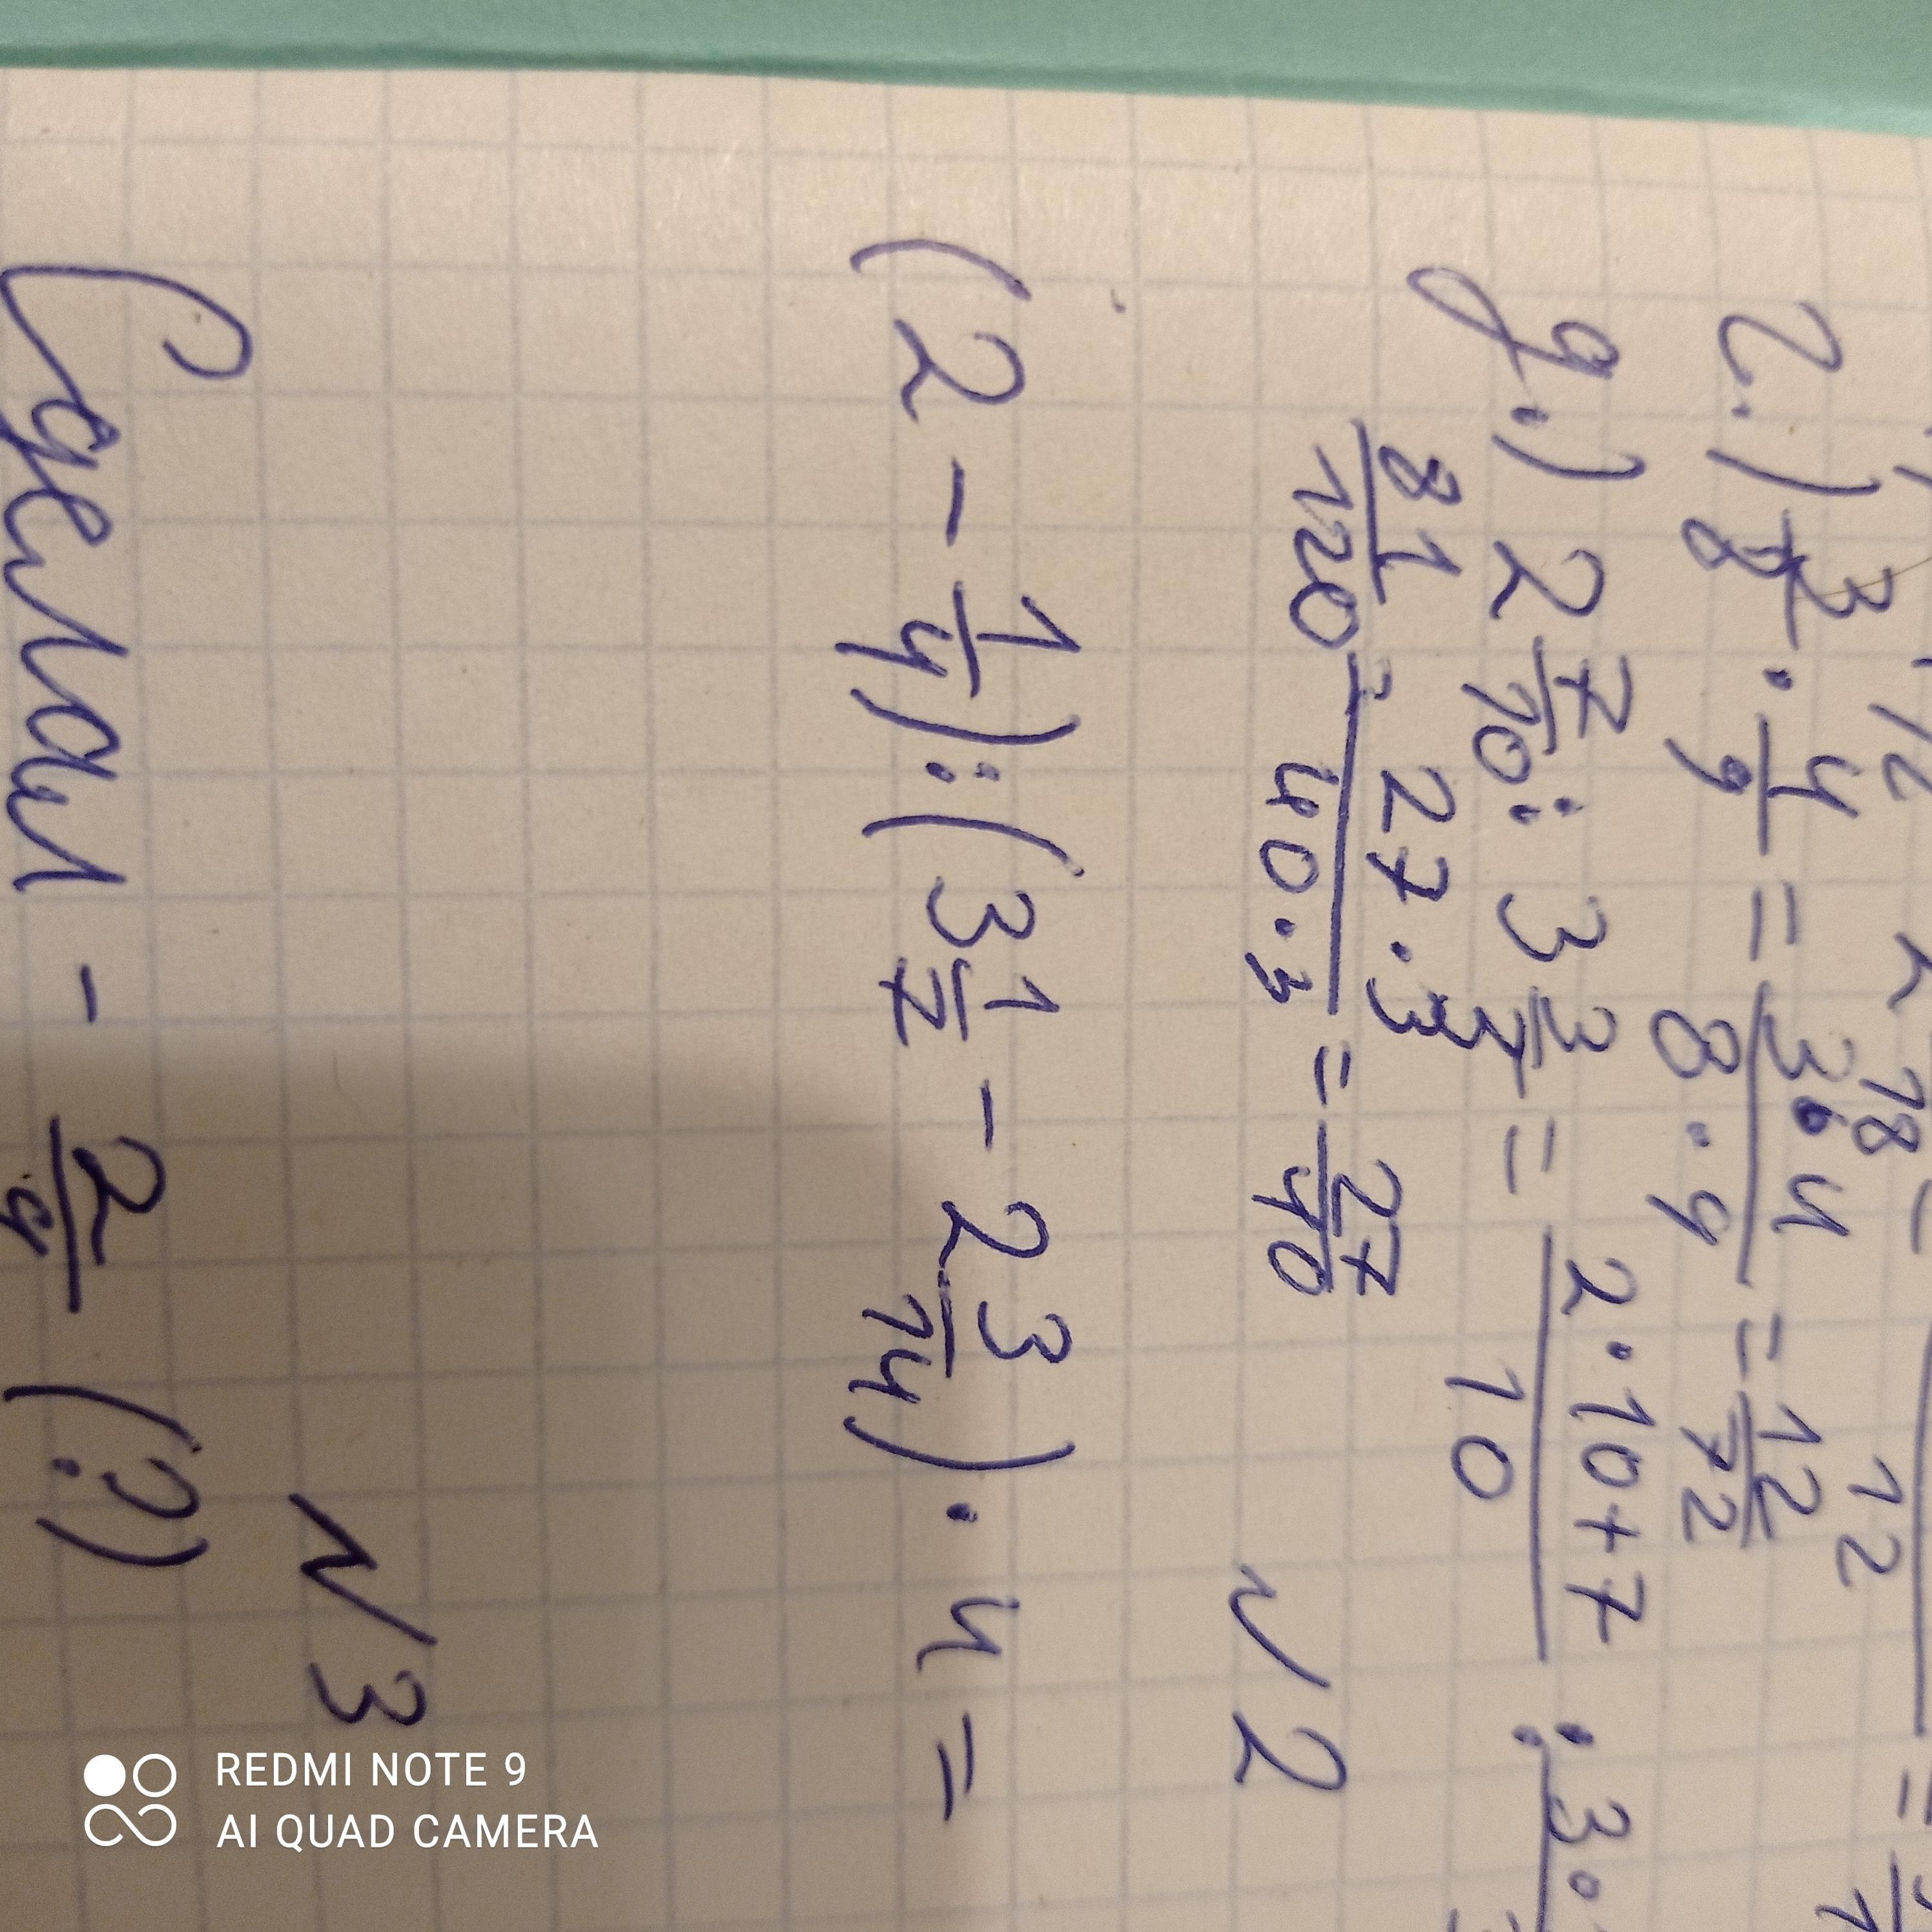 г.) 3/8 · 4/9 = 3·4/8·9 = 12/72
д.) 2 7/10 : 3 3/7 = 2·10+7/10 :
81/120 = 27·3/40·3 = 27/40
N 2
(2 - 1/4) : (3 1/7 - 2 3/14) · 4 =
N 3
Сделал - 2/9 (?)
REDMI NOTE 9
AI QUAD CAMERA